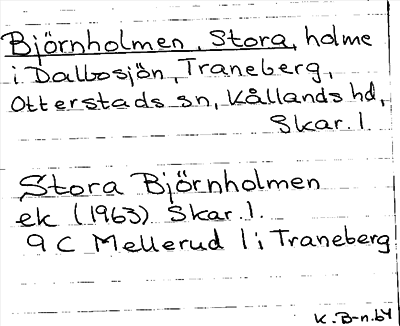 Björnholmen, Stora, holme
i Dalbosjön, Traneberg,
Otterstads sn, Kållands hd,
Skar. l.
Stora Björnholmen
ek (1963) Skar. l.
9 C Mellerud 1 i Traneberg
K. B-n. 64